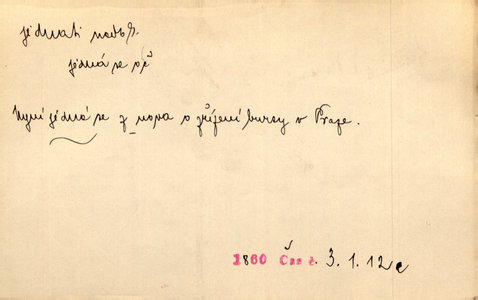 jednati nedok.
jedná se o č
Nyní jedná se z nova o zřízení bursy v Praze.
1860 Čas č. 3. 1. 12 c